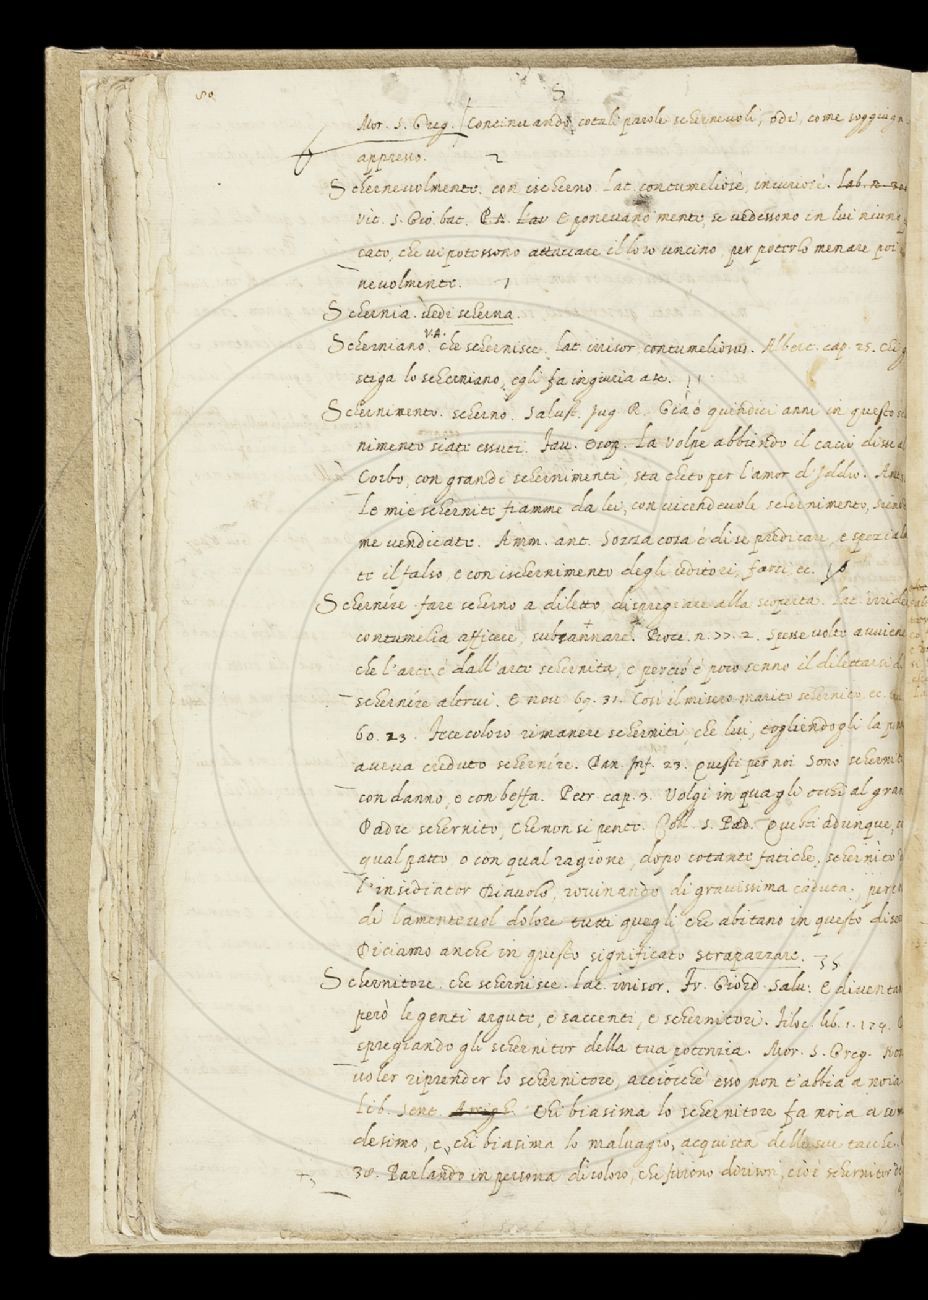 S
Mor. S. Greg. Continuando cotali parole schernevoli, odi, come
appresso. 2
Schernevolmente. con ischerno. Lat. contumeliosè, iniuriosè. Lab. n.
vit. S. Gio. bat. P. N. Lav E ponevano mente, se vedessono in lui niuno
cato, che vi potessono attaccare il loro uncino, per poterlo menare poi
nevolmente. 1
Schernia. vedi scherna.
Scherniano V.A. che schernisce. Lat. irrisor, contumeliosus. Albert. cap. 25. Chi
stiga lo scherniano, egli fa ingiuria a se.
Schernimento. scherno. Salust. Jug. R. Già è quindici anni in questo
nimento siate essuti. Fav. Esop. La Volpe abbiendo il cacio di
Corbo, con grandi schernimenti, sta cheto per l'amor d'Iddio.
Le mie schernite fiamme da lei, con vicendevole schernimento,
me vendicate. Amm. ant. Sozza cosa è di se predicare, e
te il falso, e con ischernimento degli uditori, farsi ec.
Schernire. fare scherno a diletto, dispregiare alla scoperta. Lat.
contumelia afficere, subsannare. Bocc. n. 77. 2. Spesse volte avviene
che l'arte è dall'arte schernita, e perciò è poco senno il dilettarsi
schernire altrui. E nov. 69. 31. Così il misero marito schernito ec.
60. 23. Jccecoloro rimanere scherniti, che lui, togliendogli la
aveva creduto schernire. Dan. Inf. 23. Questi per noi sono
con danno, e con beffa. Petr. cap. 3. Volgi in qua gli occhi al gran
Padre schernito, che non si pente. Coll. S. Pad. Quebti adunque,
qual patto o con qual ragione, dopo cotante fatiche, schernito
l'insidiator Diavolo, rovinando di gravissima caduta,
di lamentevol dolore tutti quegli che abitano in questo
Diciamo anche in questo significato strapazzare. 35
Schernitore. che schernisce. Lat. irrisor. Fr. Giord. Salv. E
però le genti argute, e saccenti, e schernitori. Filoc. lib. 1. 124.
spregiando gli schernitor della tua potenzia. Mor. S. Greg. Non
voler riprender lo schernitore, acciocchè esso non t'abbia a noia
Lib. Sent. Chi biasima lo schernitore fa noia a
desimo, e, chi biasima lo malvagio, acquista delle sue tacche.
38. Parlando in persona di coloro, che furono derisori, cioè schernitor